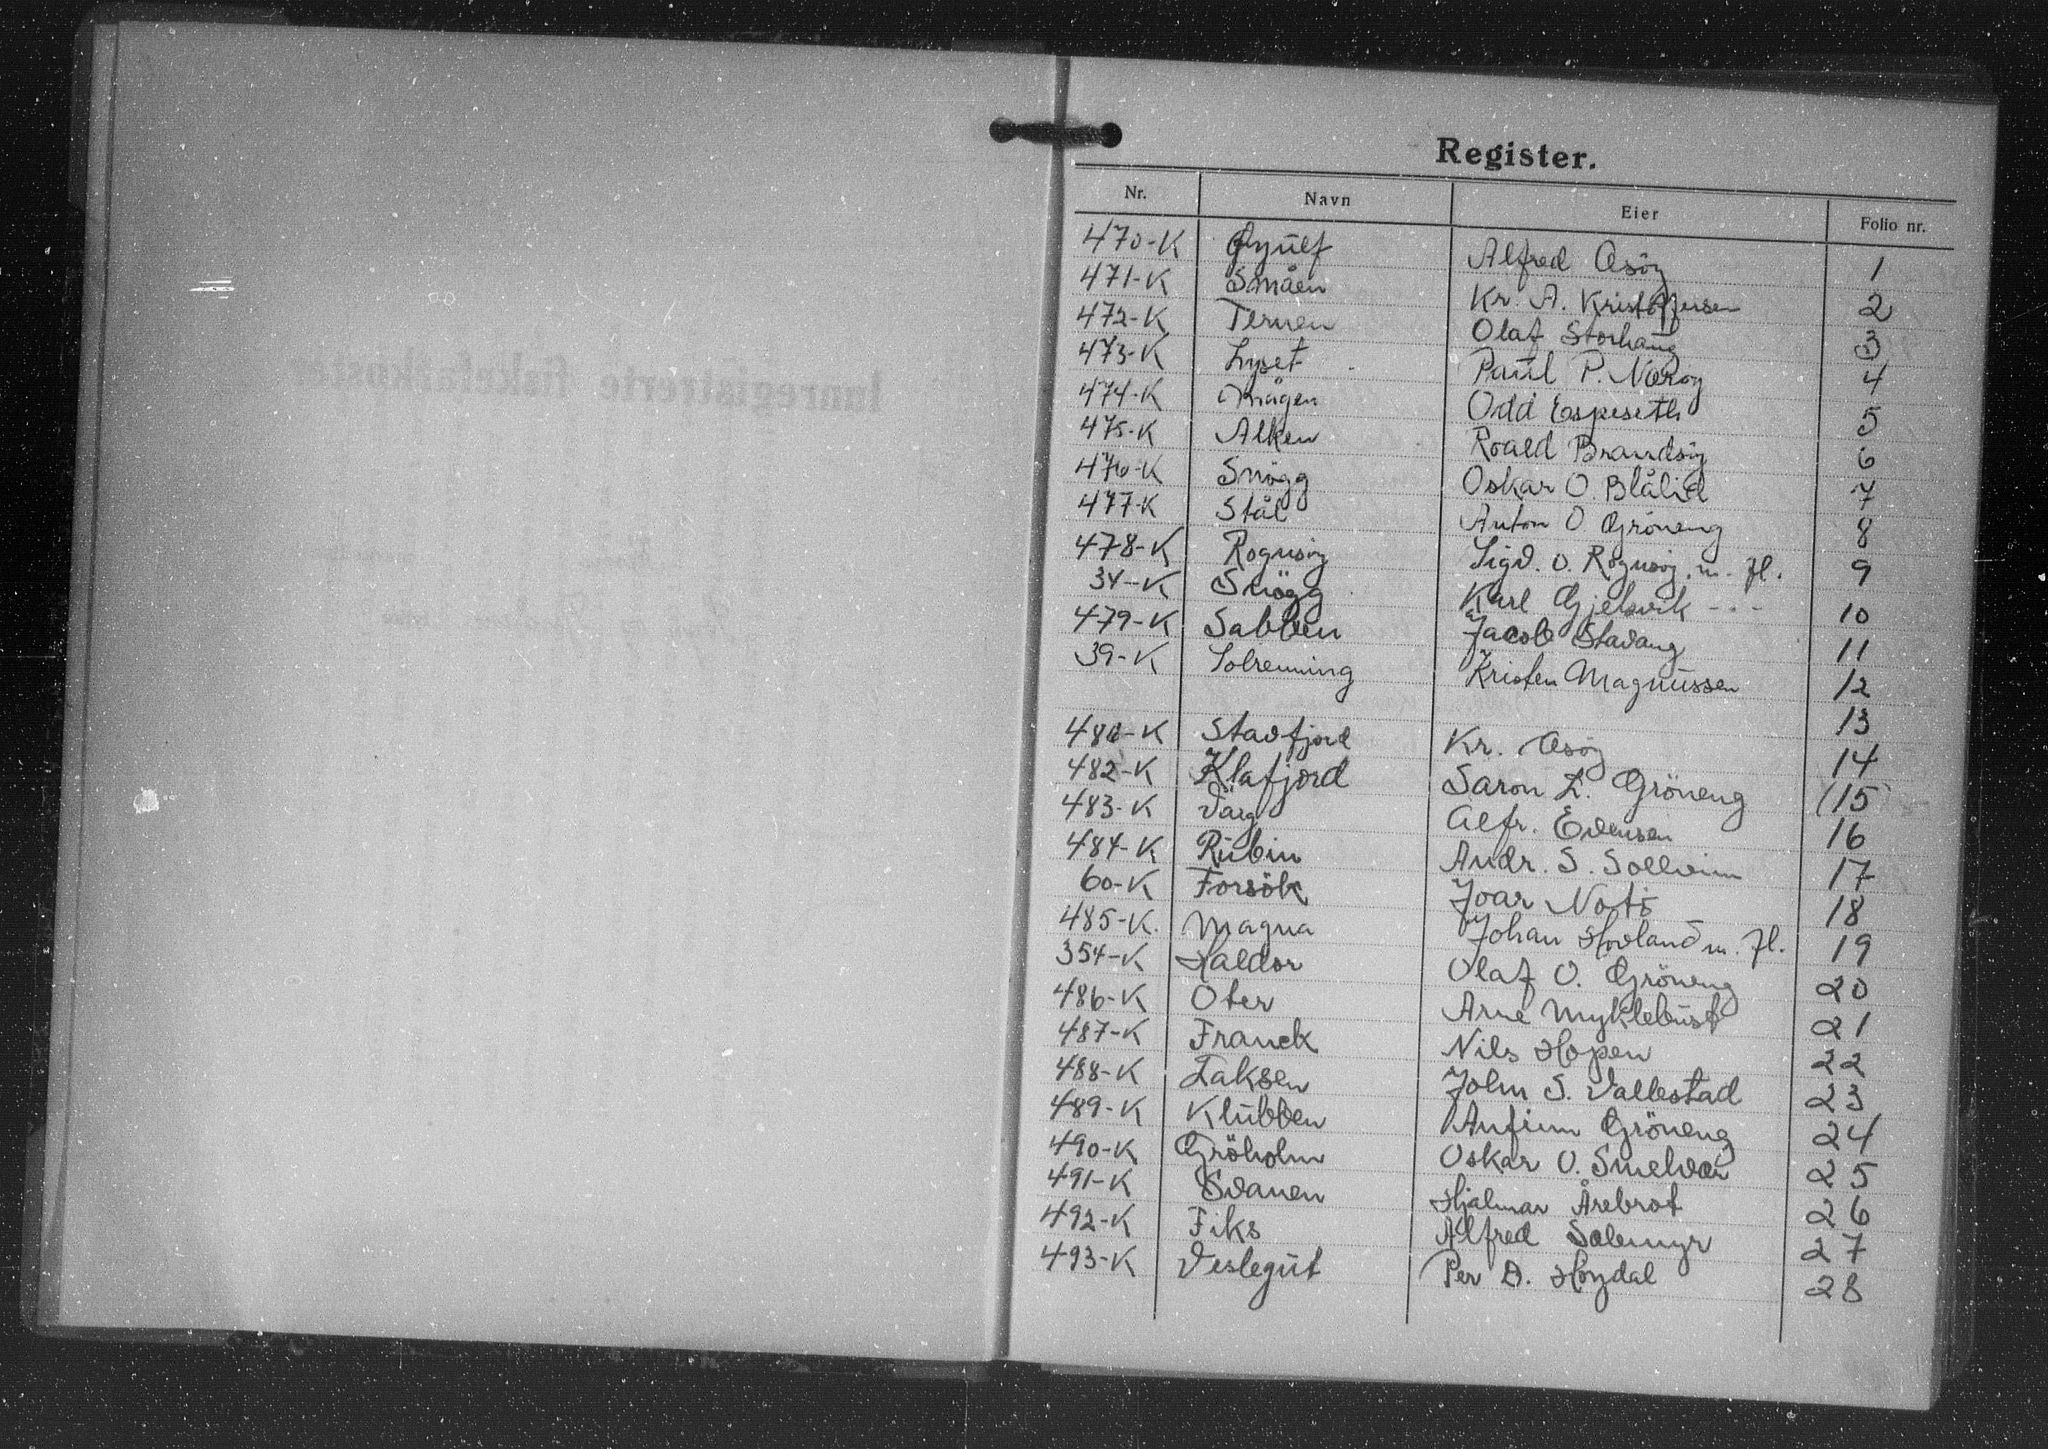 Register.
Nr. Navn Eier Folio nr.
470-K Øyulf Alfred Asöy 1
471-K Småen Kr. A. Kristoffersen 2
472-K Ternen Olaf Storhaug 3
473-K Lyset Paul P. Näröy 4
474-K Mågen Odd Espeseth 5
475-K Alken Roald Brandsöy 6
476-K Snögg Oskar O. Blålid 7
477-K Stål Anton O. Gröneng 8
478-K Rognsöy Sigv. O. Rognsöy m. fl. 9
34-K Snögg Karl Gjelsvik - - - 10
479-K Sabben Jacob Stavang 11
39-K Solrenning Kristen Magnussen 12
13
481-K Stavfjord Kr. Asöy 14
482-K Klafjord Saron L. Gröneng 15
483-K Varg Alfr. Evensen 16
484-K Rubin Andr. S. Solheim 17
60-K Forsök Joar 18
485-K Magna Johan Hovland m. fl. 19
354-K Haldor Olaf O. Gröneng 20
486-K Oter Arne Myklebust 21
487-K Franck Nils Hopen 22
488-K Laksen John S. Vallestad 23
489-K Klubben Anfinn Gröneng 24
490-K Gröholm Oskar O. Smelvær 25
491-K Svanen Hjalmar Årebrot 26
492-K Fiks Alfred Solemyr 27
493-K Veslegut Per D. Höydal 28
Innregistrerte fiskefarkoster